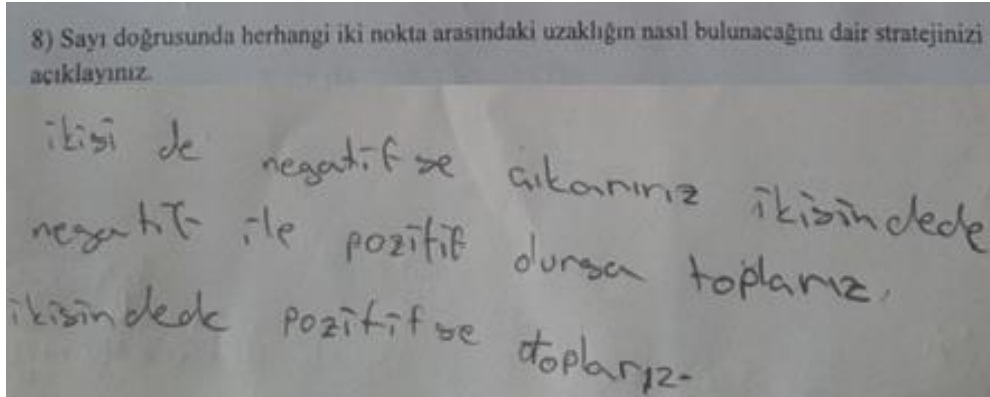 8) Sayı doğrusunda herhangi iki nokta arasındaki uzaklığın nasıl bulunacağını dair stratejinizi
açıklayınız.
ikisi de negatifse çıkarırız ikisindede
negatif ile pozitif dursa toplarız.
ikisindede pozitifse toplarız.